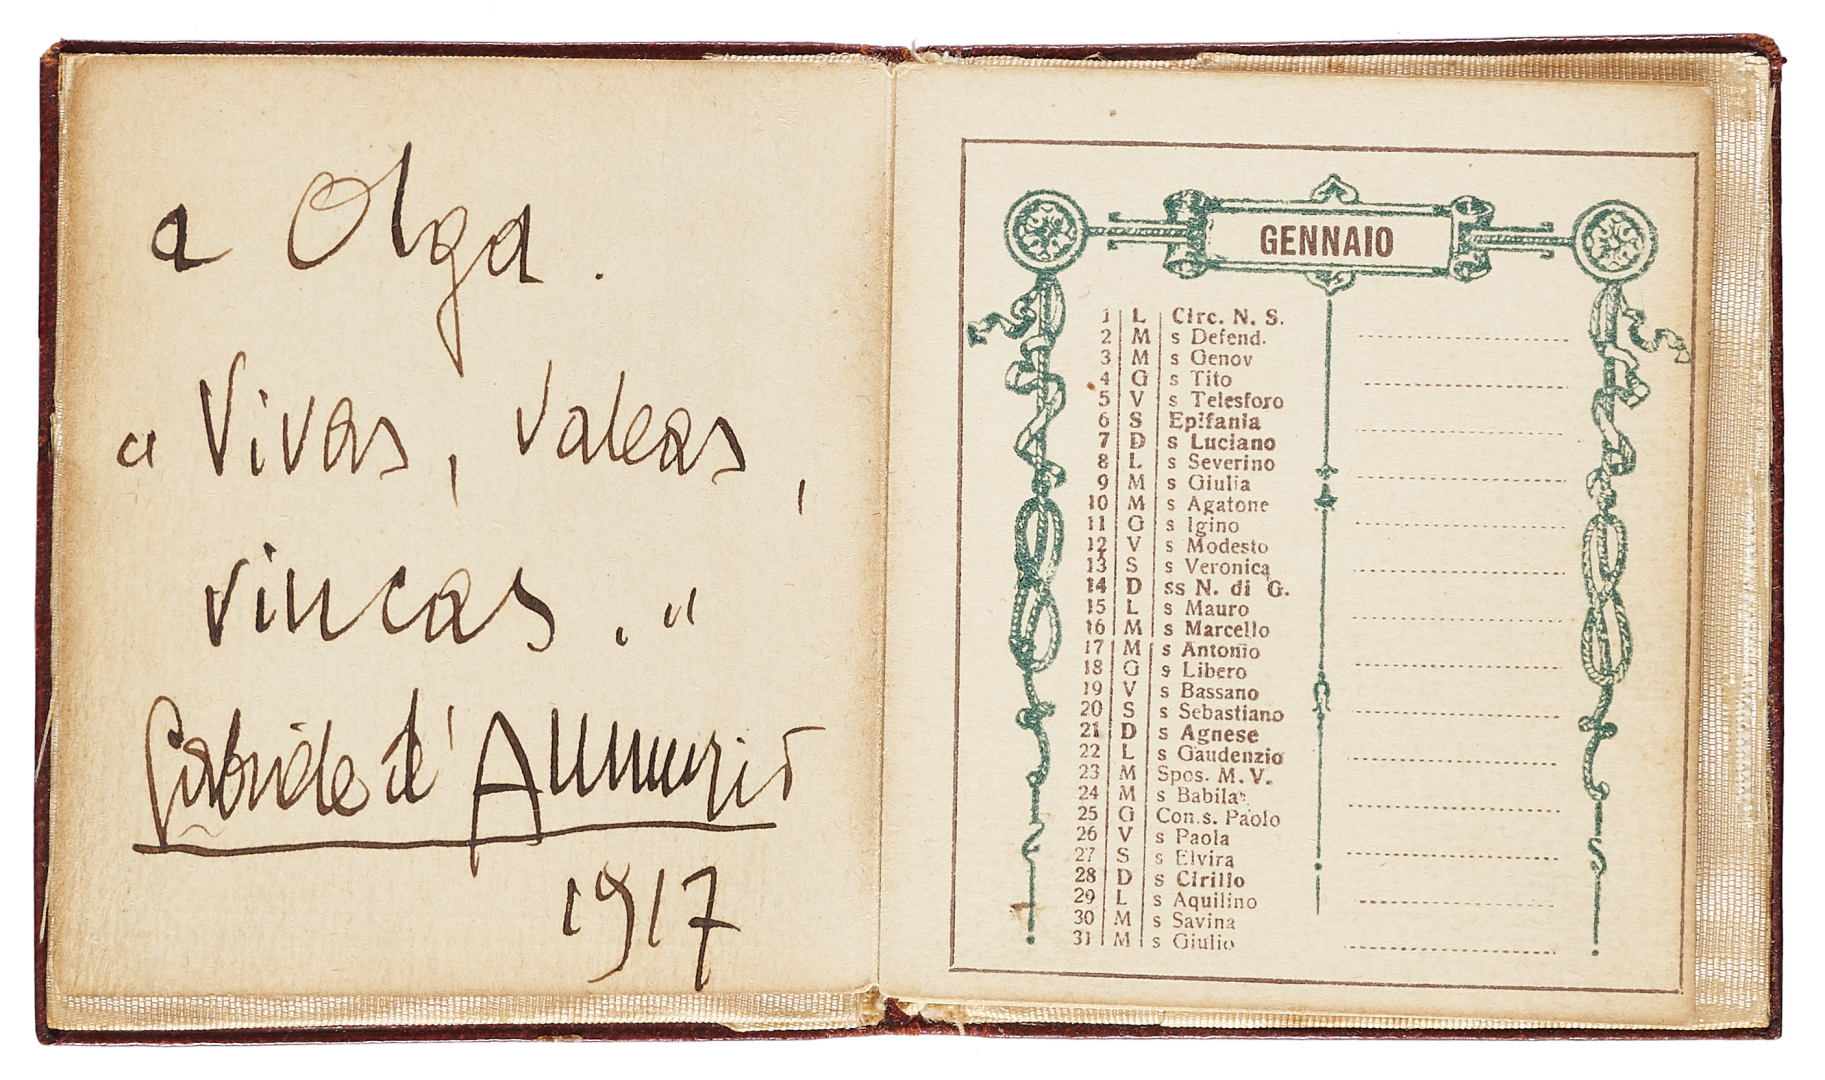 a Olga.
"Vivas, valeas,
vincas."
Gabriele d'Annunzio
1917
GENNAIO
1 L Circ. N. S.
2 M s Defend.
3 M s Genov
4 G s Tito
5 V s Telesforo
6 S Epifania
7 D s Luciano
8 L s Severino
9 M s Giulia
10 M s Agatone
11 G s Igino
12 V s Modesto
13 S s Veronica
14 D ss N. di G.
15 L s Mauro
16 M s Marcello
17 M s Antonio
18 G s Libero
19 V s Bassano
20 S s Sebastiano
21 D s Agnese
22 L s Gaudenzio
23 M Spos. M. V.
24 M s Babila
25 G Con.s. Paolo
26 V s Paola
27 S s Elvira
28 D s Cirillo
29 L s Aquilino
30 M s Savina
31 M s Giulio